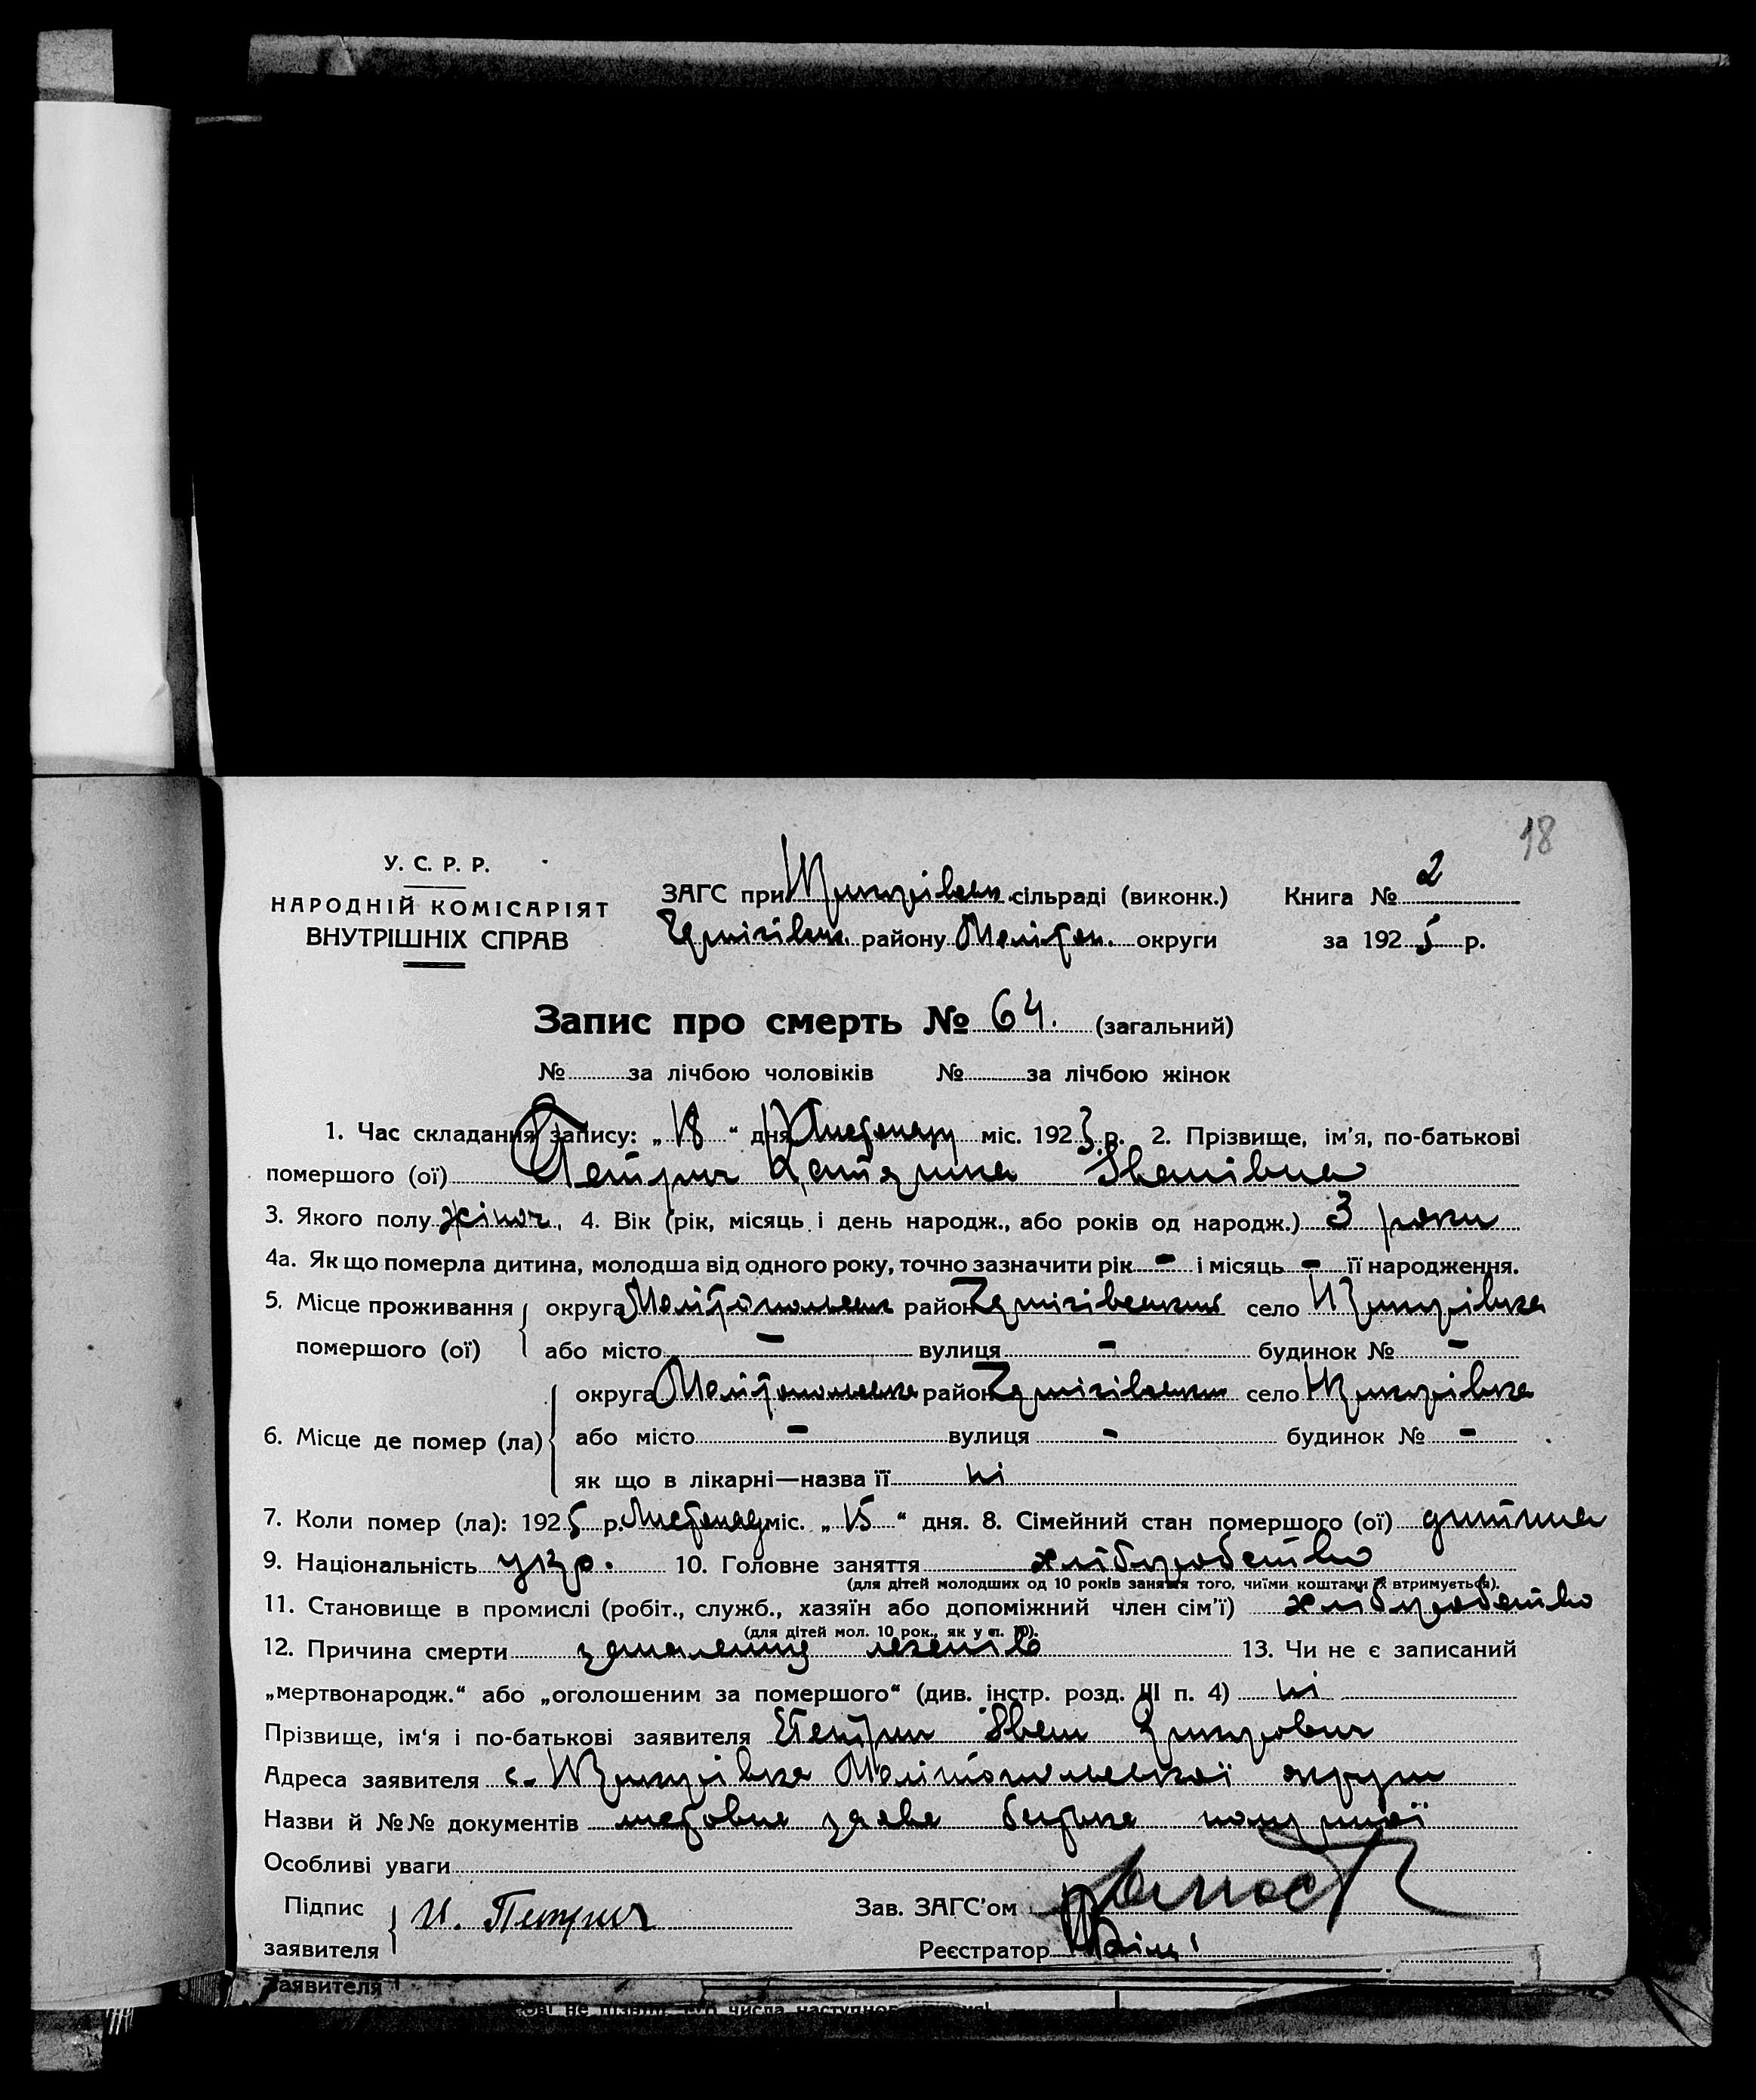 18
У. С. Р. Р.
НАРОДНІЙ КОМІСАРІЯТ
ВНУТРІШНІХ СПРАВ
ЗАГС при сільраді (виконк.)
району округи
Книга № 2
за 1925 р.
Запис про смерть № 64. (загальний)
№ за лічбою чоловіків № за лічбою жінок
1. Час складання запису: „ 18 “ дня Листопаду міс. 192 р. 2. Прізвище, ім’я, по-батькові
помершого (ої) Петрич Катерина Іванівна
3. Якого полу жіноч. 4. Вік (рік, місяць і день народж., або років од народж.) 3 роки
4а. Як що померла дитина, молодша від одного року, точно зазначити рік - і місяць - її народження.
5. Місце проживання округа район село
помершого (ої) або місто - вулиця - будинок № -
округа район село
6. Місце де помер (ла) або місто - вулиця - будинок № -
як що в лікарні—назва її ні
7. Коли помер (ла): 1925 р. Листопаду міс. „ 15 “ дня. 8. Сімейний стан помершого (ої) дитина
9. Національність укр. 10. Головне заняття хліборобство
(для дітей молодших од 10 років заняття того, чиїми коштами їх втримується).
11. Становище в промислі (робіт., служб., хазяїн або допоміжний член сім’ї) хліборобство
(для дітей мол. 10 рок., як у п. 10).
12. Причина смерти запалення легенів 13. Чи не є записаний
„мертвонародж.“ або „оголошеним за помершого“ (див. інстр. розд. III п. 4) ні
Прізвище, ім‘я і по-батькові заявителя Петрич Іван
Адреса заявителя с. Мелітопольської округи
Назви й №№ документів заява батька
Особливі уваги
Підпис
заявителя И. Петрич
Зав. ЗАГС’ом
Реєстратор
Заявителя